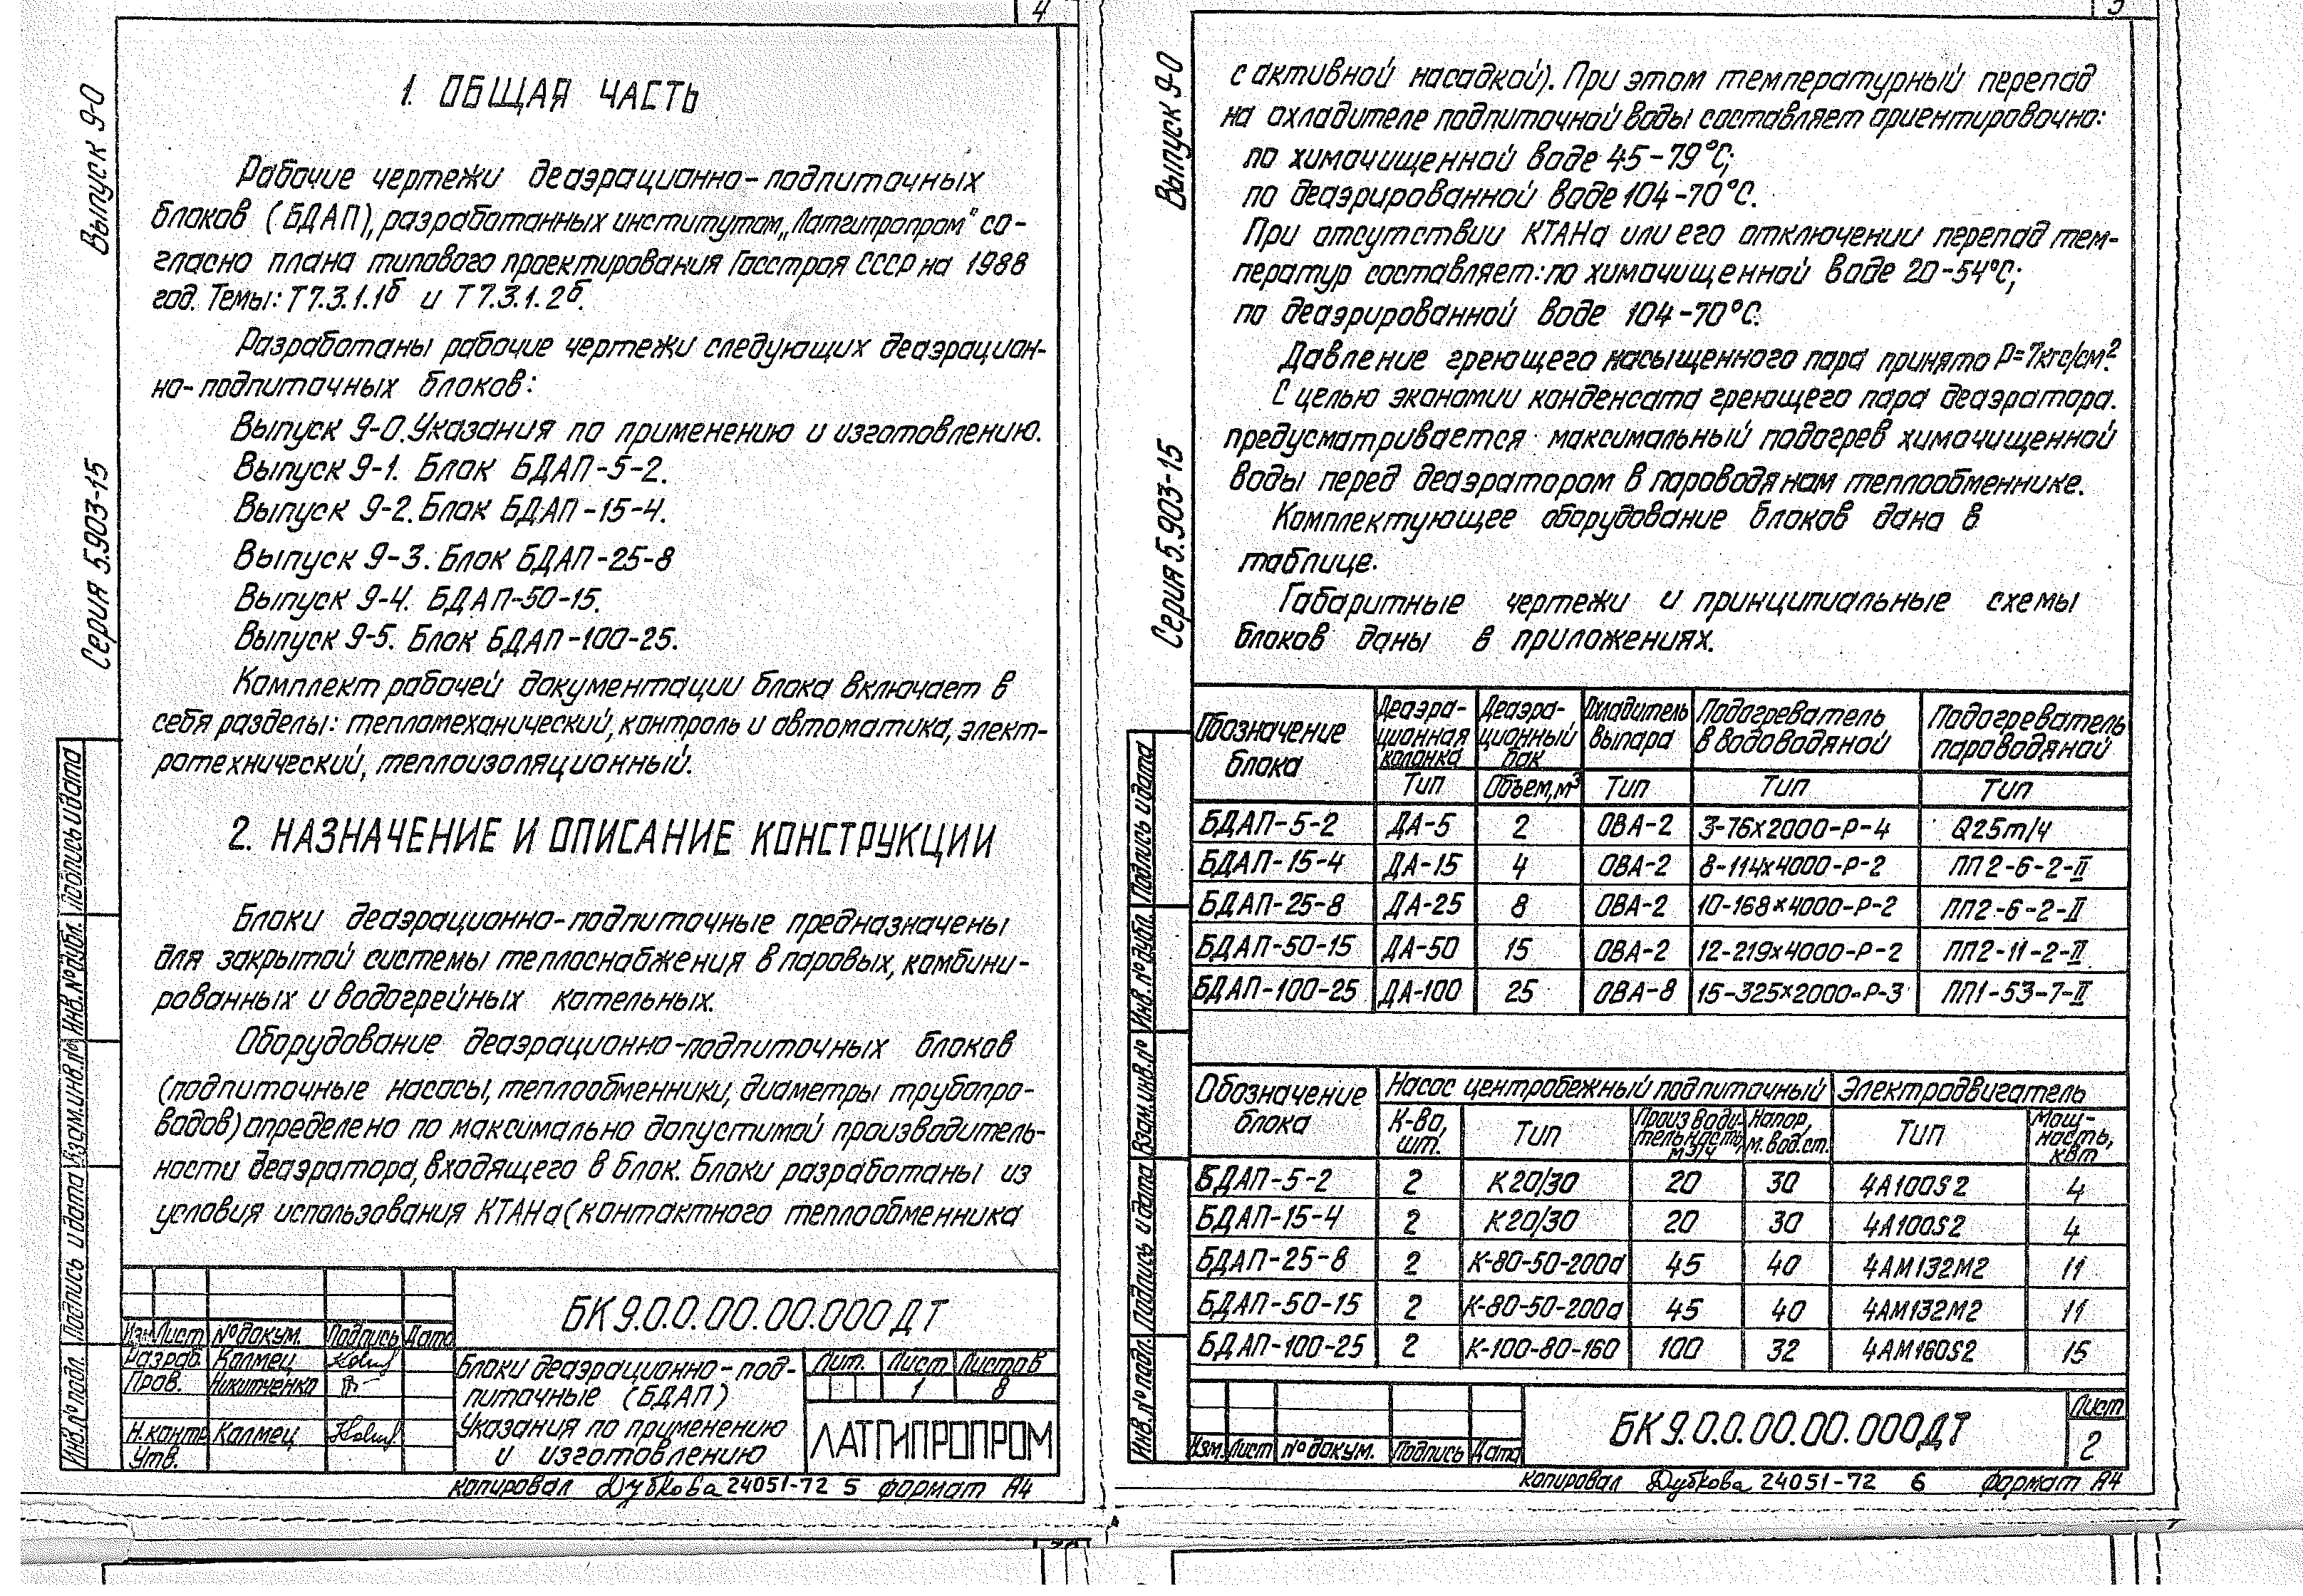 4
Выпуск 9-0
Серия 5.903-15
1. ОБЩАЯ ЧАСТЬ
Рабочие чертежи деаэрационно-подпиточных
блоков (БДАП), разработанных институтом „Латгипропром" со-
гласно плана типового проектирования Госстроя СССР на 1988
год. Темы: Т7.3.1.1б и Т7.3.1.2б.
Разработаны рабочие чертежи следующих деаэрацион-
но-подпиточных блоков:
Выпуск 9-0. Указания по применению и изготовлению.
Выпуск 9-1. Блок БДАП-5-2.
Выпуск 9-2. Блок БДАП-15-4.
Выпуск 9-3. Блок БДАП-25-8
Выпуск 9-4. БДАП-50-15.
Выпуск 9-5. Блок БДАП-100-25.
Комплект рабочей документации блока включает в
себя разделы: тепломеханический, контроль и автоматика, элект-
ротехнический, теплоизоляционный.
2. НАЗНАЧЕНИЕ И ОПИСАНИЕ КОНСТРУКЦИИ
Блоки деаэрационно-подпиточные предназначены
для закрытой системы теплоснабжения в паровых, комбини-
рованных и водогрейных котельных.
Оборудование деаэрационно-подпиточных блоков
(подпиточные насосы, теплообменники, диаметры трубопро-
водов) определено по максимально допустимой производитель-
ности деаэратора, входящего в блок. Блоки разработаны из
условия использования КТАНа (контактного теплообменника
Подпись и дата
Инв. № дубл.
Взам. инв. №
Подпись и дата
Инв. № подл.
БК 9.0.0.00.00.000 ДТ
Изм. Лист № докум. Подпись Дата
Разраб. Калмец
Пров. Никитченко
Н.контр. Калмец
Утв.
Блоки деаэрационно-под-
питочные (БДАП)
Указания по применению
и изготовлению
Лит. Лист Листов
1 8
ЛАТГИПРОПРОМ
копировал Дубкова 24051-72 5 формат А4
5
Выпуск 9-0
Серия 5.903-15
с активной насадкой). При этом температурный перепад
на охладителе подпиточной воды составляет ориентировочно:
по химочищенной воде 45-79°С;
по деаэрированной воде 104-70°С.
При отсутствии КТАНа или его отключении перепад тем-
ператур составляет: по химочищенной воде 20-54°С;
по деаэрированной воде 104-70°С.
Давление греющего насыщенного пара принято Р=7кгс/см².
С целью экономии конденсата греющего пара деаэратора.
предусматривается максимальный подогрев химочищенной
воды перед деаэратором в пароводяном теплообменнике.
Комплектующее оборудование блоков дана в
таблице.
Габаритные чертежи и принципиальные схемы
блоков даны в приложениях.
Обозначение блока Деаэра-ционная колонка Деаэра-ционный бак Охладитель выпара Подогреватель в водоводяной Подогреватель пароводяной
Тип Объем, м³ Тип Тип Тип
БДАП-5-2 ДА-5 2 ОВА-2 3-76х2000-Р-4 Q25т/ч
БДАП-15-4 ДА-15 4 ОВА-2 8-114х4000-Р-2 ПП2-6-2-II
БДАП-25-8 ДА-25 8 ОВА-2 10-168х4000-Р-2 ПП2-6-2-II
БДАП-50-15 ДА-50 15 ОВА-2 12-219х4000-Р-2 ПП2-11-2-II
БДАП-100-25 ДА-100 25 ОВА-8 15-325х2000-Р-3 ПП1-53-7-II
Обозначение блока Насос центробежный подпиточный Электродвигатель
К-во, шт. Тип Производи-тельность, м³/ч Напор, м.вод.ст. Тип Мощ-ность, квт
БДАП-5-2 2 К20/30 20 30 4А100S2 4
БДАП-15-4 2 К20/30 20 30 4А100S2 4
БДАП-25-8 2 К-80-50-200а 45 40 4АМ132М2 11
БДАП-50-15 2 К-80-50-200а 45 40 4АМ132М2 11
БДАП-100-25 2 К-100-80-160 100 32 4АМ160S2 15
Подпись и дата
Инв. № дубл.
Взам. инв. №
Подпись и дата
Инв. № подл.
Изм. Лист № докум. Подпись Дата
БК 9.0.0.00.00.000ДТ
Лист
2
копировал Дубкова 24051-72 6 формат А4